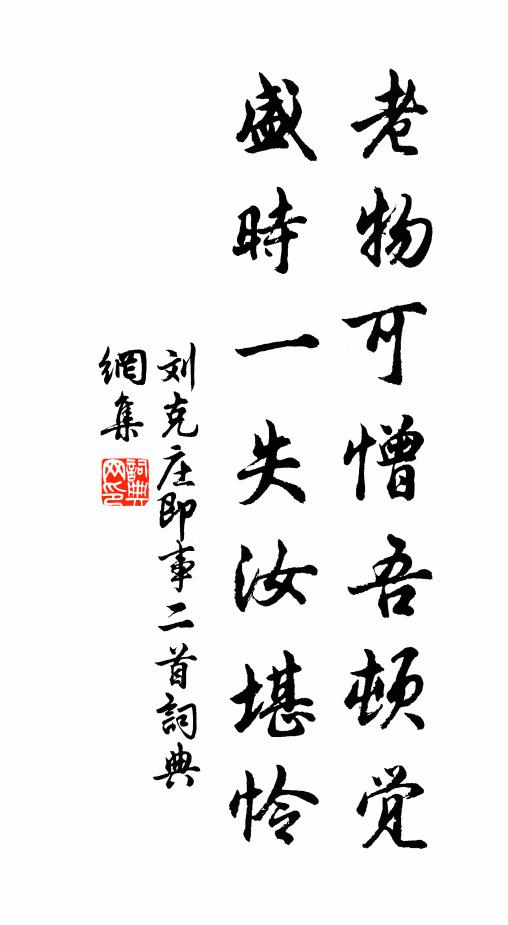 老物可憎吾顿觉
盛時一失汝堪怜
刘克庄即事二首詞典
網集
詞典網印